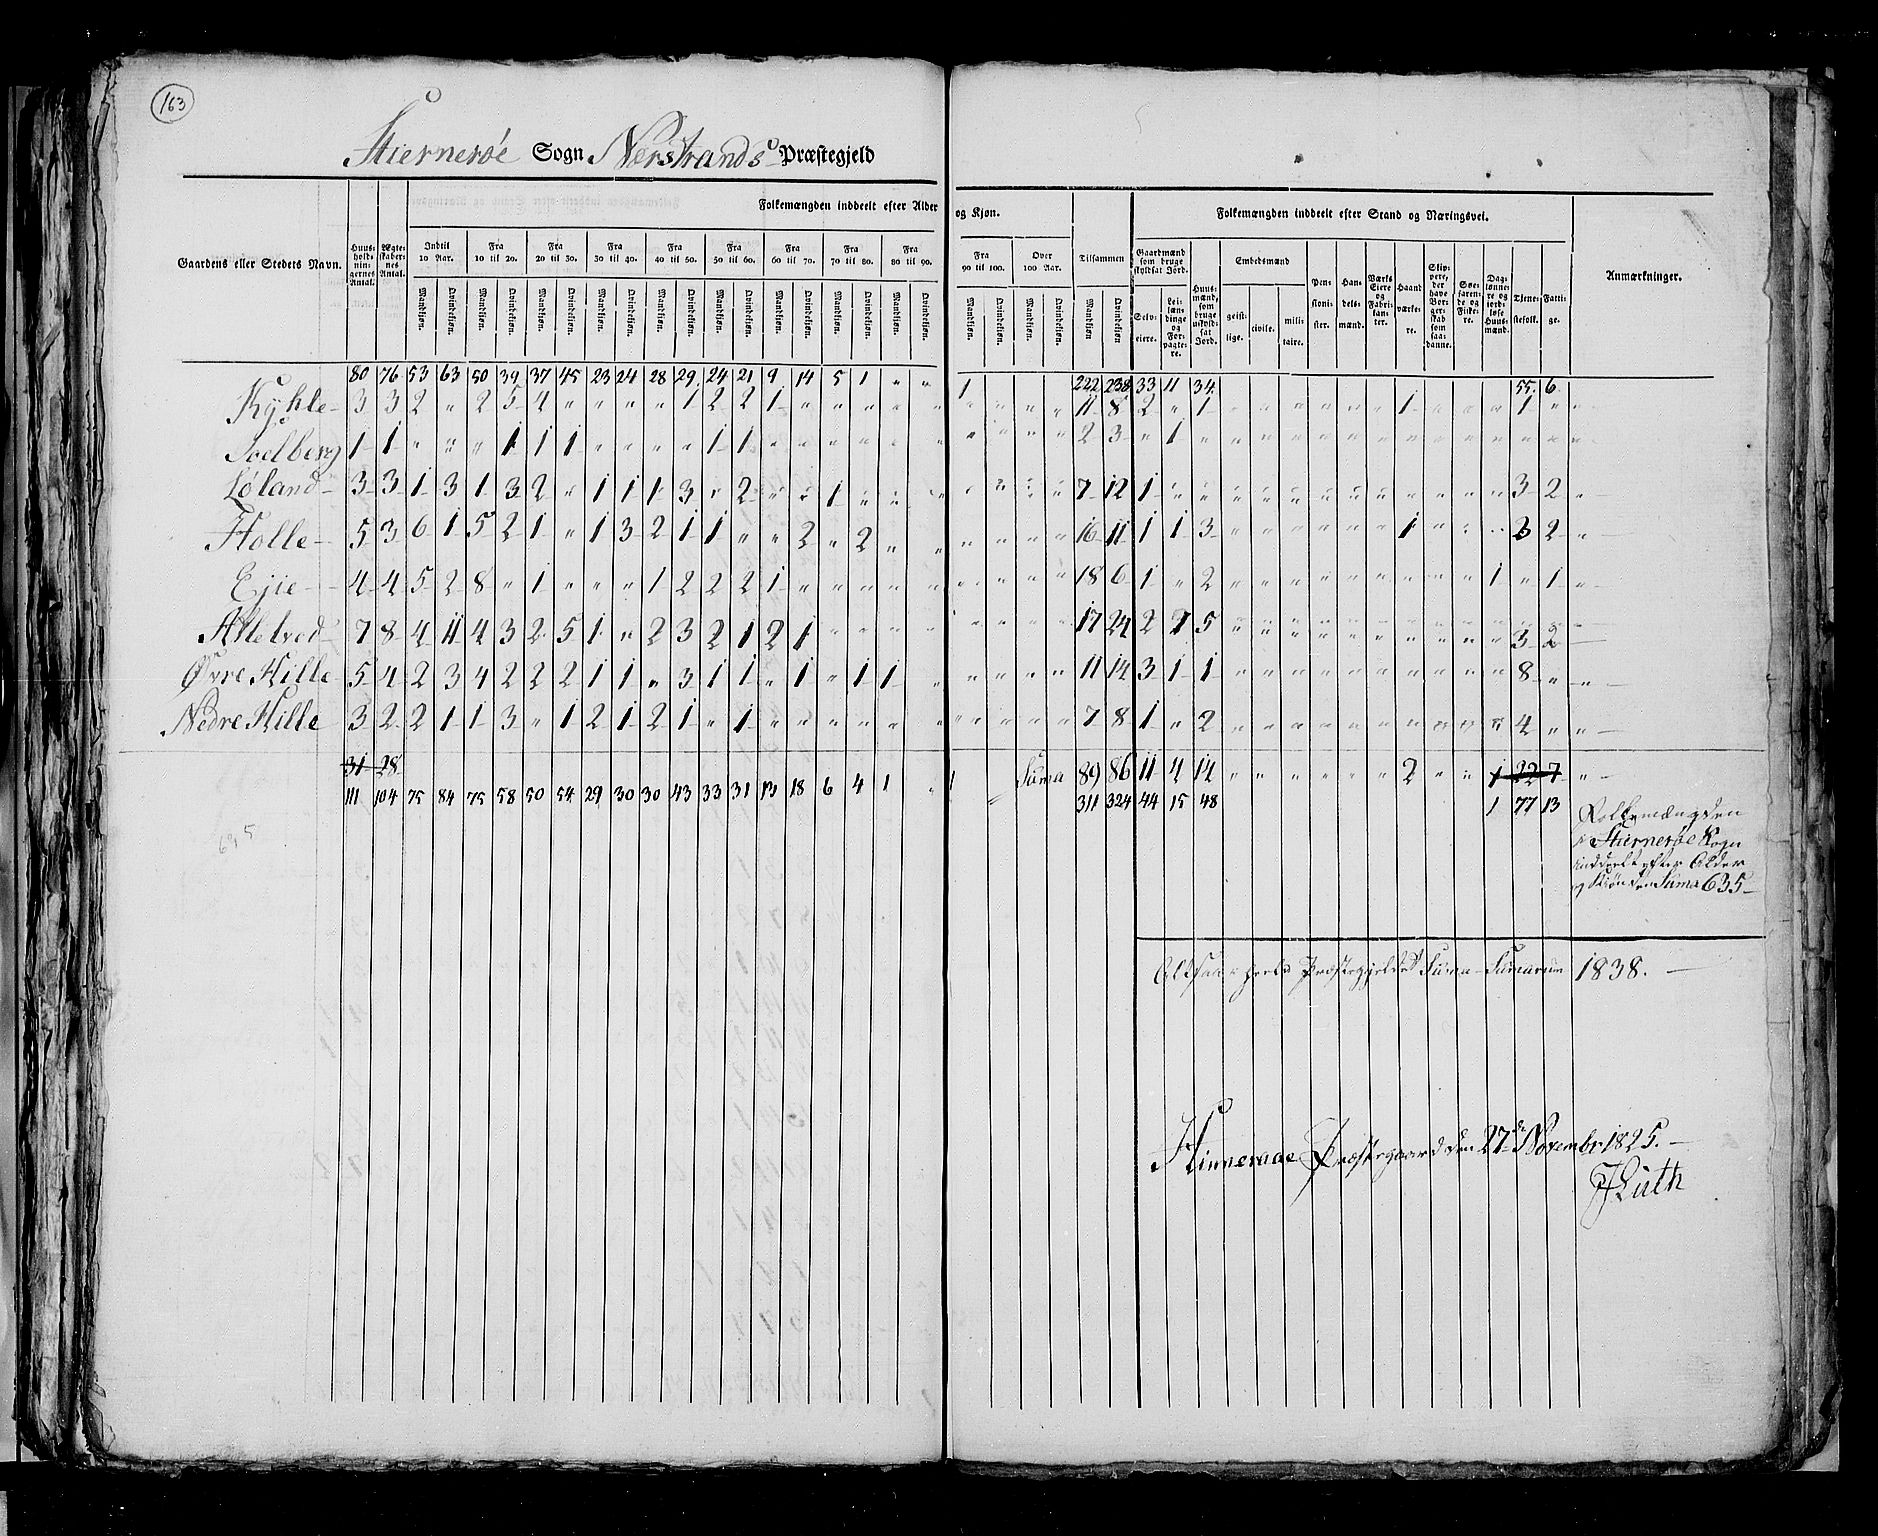 163
Stierneröe Sogn Nerstrands Præstegjeld
Folkemængden inddeelt efter Alder og Kjøn.
Folkemængden inddeelt efter Stand og Næringsvei.
Gaardens eller Stedets Navn. Huusholdningernes Antal. Ægteskabernes Antal. Indtil 10 Aar. Fra 10 til 20. Fra 20 til 30. Fra 30 til 40. Fra 40 til 50. Fra 50 til 60. Fra 60 til 70. Fra 70 til 80. Fra 80 til 90. Fra 90 til 100. Over 100 Aar. Tilsammen Gaardmænd som bruge skyldsat Jord. Huusmænd, som bruge uskyldsat Jord. Embedsmænd Pensionister. Handelsmænd. Værks Eiere og Fabrikanter. Haandværkere. Skippere, der have Borgerskab som saadanne. Søefarende og Fiskere. Daglønnere og jordløse Huusmænd. Tjenestefolk. Fattige. Anmærkninger.
Mandkjøn. Qvindekjøn. Mandkjøn. Qvindekjøn. Mandkjøn. Qvindekjøn. Mandkjøn. Qvindekjøn. Mandkjøn. Qvindekjøn. Mandkjøn. Qvindekjøn. Mandkjøn. Qvindekjøn. Mandkjøn. Qvindekjøn. Mandkjøn. Qvindekjøn. Mandkjøn. Qvindekjøn. Mandkjøn. Qvindekjøn. Mandkjøn Qvindekjøn Selveiere. Leilændinge og Forpagtere. geistlige. civile. militaire.
80 76 53 63 50 39 37 45 23 24 28 29 24 21 9 14 5 1 " " 1 222 238 33 11 34 55 6
Kÿhle 3 3 2 " 2 5 4 " " " " 1 2 2 1 " " " " " " " " " 11 8 2 " 1 " " " " " " 1 " " " 1 " "
1 1 " " " 1 1 1 " " " " 1 1 " " " " " " " " " " 2 3 " 1 " " " " " " " " " " " " " "
Löland 3 3 1 3 1 3 2 " 1 1 1 3 " 2 " " 1 " " " " " " " 7 12 1 " " " " " " " " " " " " 3 2 "
Holle 5 3 6 1 5 2 1 " 1 3 2 1 1 " " 2 " 2 " " " " " " 16 11 1 1 3 " " " " " " 1 " " " 3 2 "
Ejie 4 4 5 2 8 " 1 " " " 1 2 2 2 1 " " " " " " " " " 18 6 1 " 2 " " " " " " " " " 1 " 1 "
7 8 4 11 4 3 2 5 1 " 2 3 2 1 2 1 " " " " " " " " 17 24 2 1 5 " " " " " " " " " " 3 2
Øvre Hille 5 4 2 3 4 2 2 2 1 1 " 3 1 1 " 1 " 1 1 " " " " " 11 14 3 1 1 " " " " " " " " " " 8 " "
Nedre Hille 3 2 2 1 1 3 " 1 2 1 2 1 " 1 " " " " " " " " " " 7 8 1 " 2 " " " " " " " " " " 4 " "
31 28 Suma 89 86 11 4 14 " " " " " " 2 " " 1 22 7 "
111 104 75 84 75 58 50 54 29 30 30 43 33 31 13 18 6 4 1 " 1 " 311 324 44 15 48 1 77 13
635
Folkemængden
i Stierneröe Sogn
inddeelt efter Alder
og Kiön den Suma 635
Altsaa heele Præstegieldets Suma Sumarum 1838.
Hinneraae Præstegaard den 27de Novembr 1825.